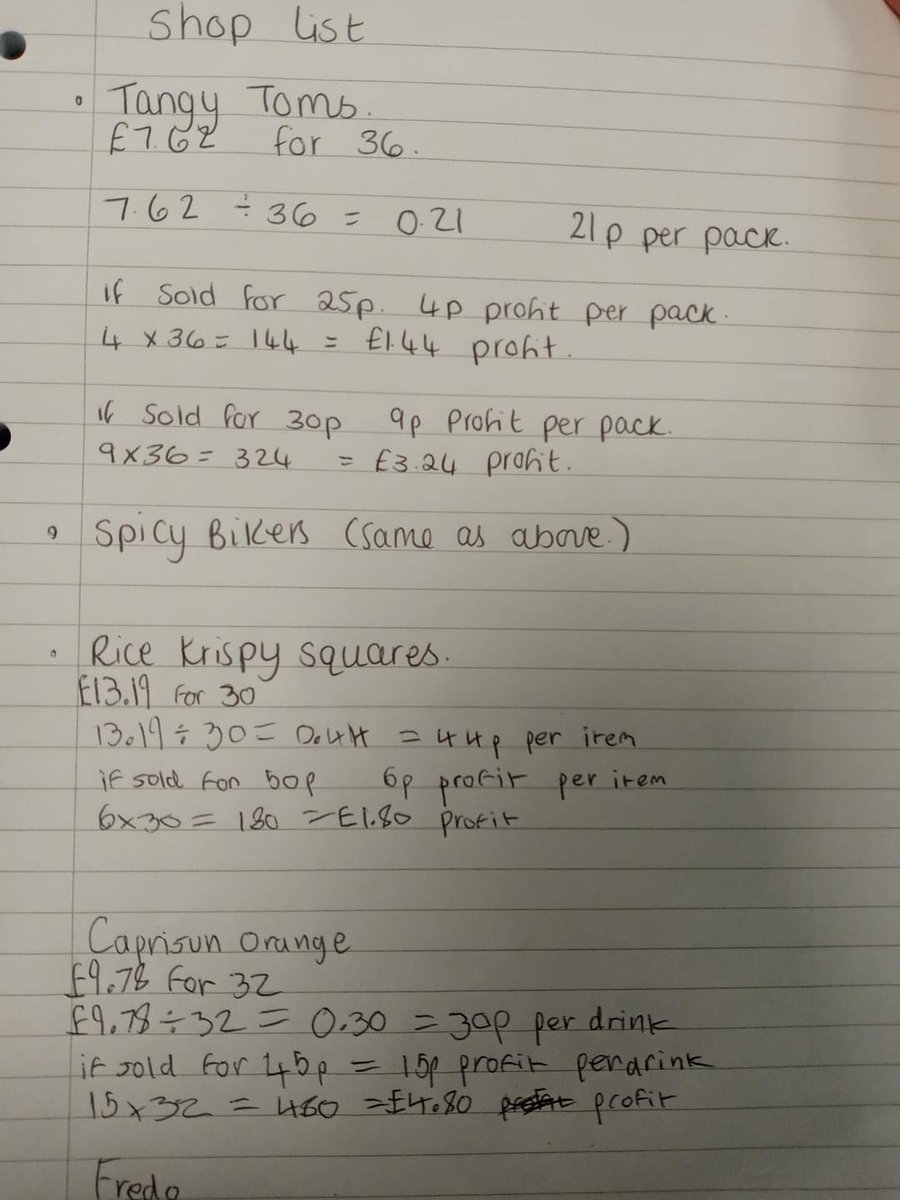 Shop list
Tangy Toms.
£7.62 for 36.
7.62 ÷ 36 = 0.21 21p per pack.
if sold for 25p. 4p profit per pack.
4 x 36 = 144 = £1.44 profit.
if sold for 30p 9p profit per pack.
9 x 36 = 324 = £3.24 profit.
Spicy Bikers (same as above.)
Rice Krispy squares.
£13.19 for 30
13.19 ÷ 30 = 0.44 = 44p per item
if sold for 50p 6p profit per item
6 x 30 = 180 = £1.80 profit
Caprisun orange
£9.78 for 32
£9.78 ÷ 32 = 0.30 = 30p per drink
if sold for 45p = 15p profit per drink
15 x 32 = 480 = £4.80 profit
Fredo